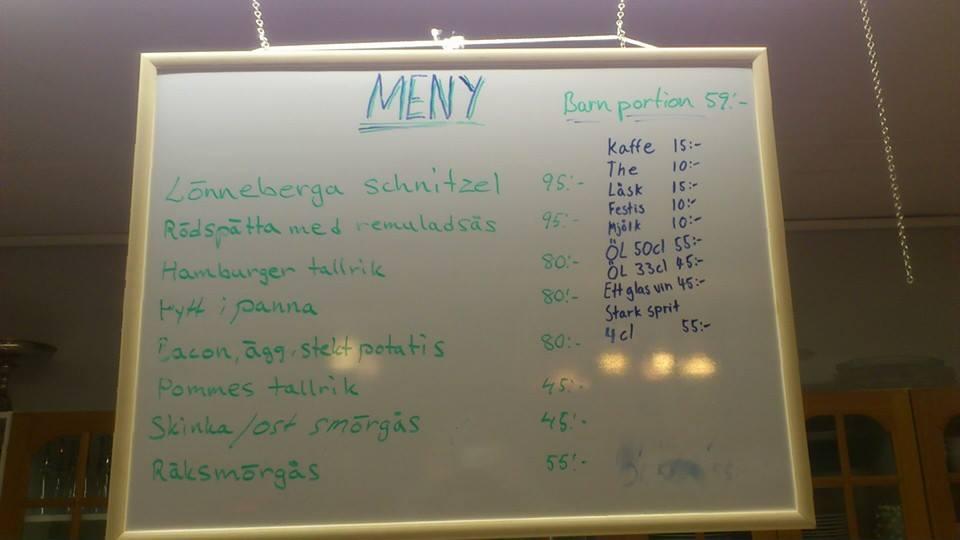 MENY
Barnportion 59:-
Lönneberga schnitzel 95:-
Rödspätta med remuladsås 95:-
Hamburger tallrik 80:-
Pytt i panna 80:-
Bacon, ägg, stekt potatis 80:-
Pommes tallrik 45:-
Skinka/ost smörgås 45:-
Räksmörgås 55:-
Kaffe 15:-
The 10:-
Läsk 15:-
Festis 10:-
Mjölk 10:-
ÖL 50cl 55:-
ÖL 33cl 45:-
Ett glas vin 45:-
Stark sprit
4cl 55:-